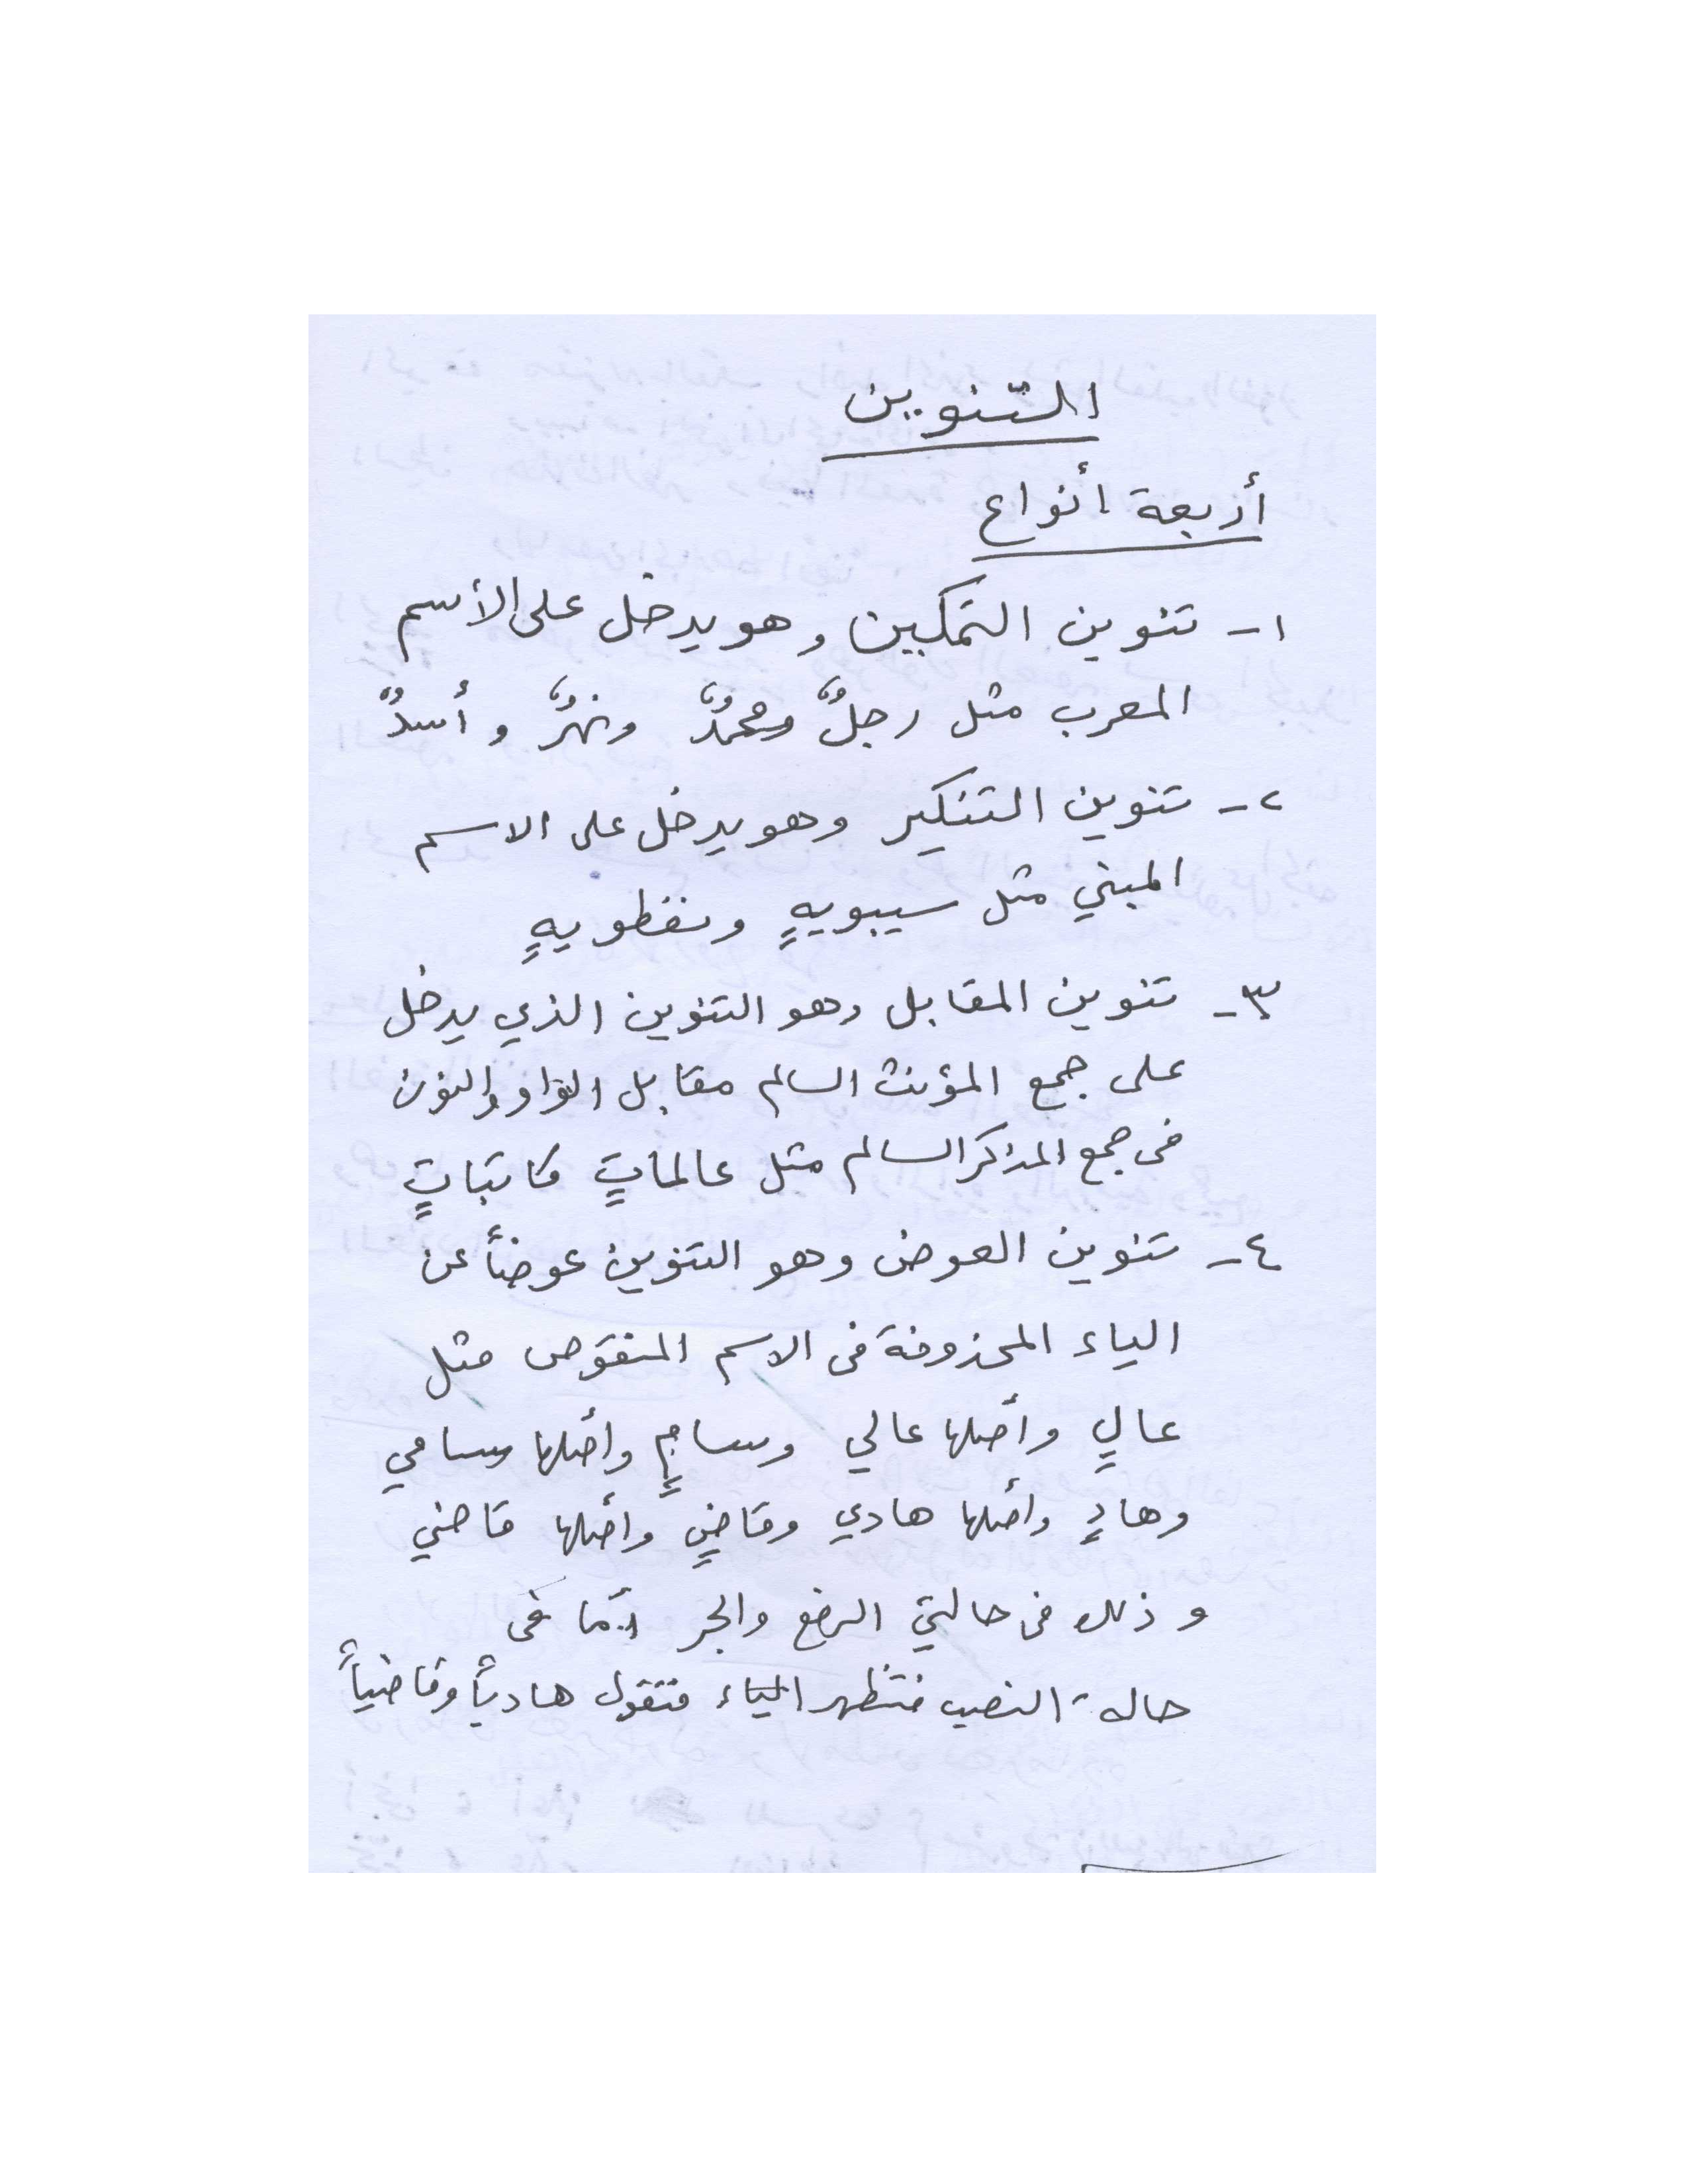 التنوين
أربعة أنواع
١- تنوين التمكين وهو يدخل على الأسم
المعرب مثل رجلٌ ومحمدٌ ونهرٌ وأسدٌ
٢- تنوين التنكير وهو يدخل على الاسم
المبني مثل سيبويهٍ ونفطويهٍ
٣- تنوين المقابل وهو التنوين الذي يدخل
على جمع المؤنث السالم مقابل الواو والنون
فى جمع المذكر السالم مثل عالماتٍ كاتباتٍ
٤- تنوين العوض وهو التنوين عوضاً عن
الياء المحذوفة فى الاسم المنقوص مثل
عالٍ وأصلها عالي وسامٍ وأصلها سامي
وهادٍ وأصلها هادي وقاضٍ وأصلها قاضي
وذلك فى حالتي الرفع والجر أمّا فى
حالة النصب فتظهر الياء فتقول هادياً وقاضياً